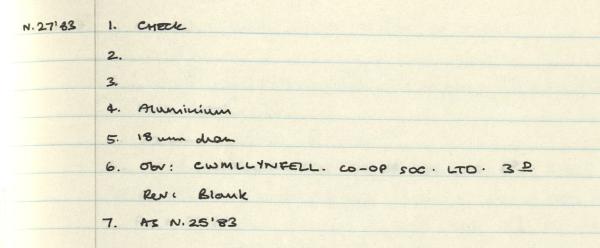 N.27'83 1. CHECK
2.
3.
4. Aluminium
5. 18 mm diam
6. Obv: CWMLLYNFELL. CO-OP SOC. LTD. 3 D
Rev: Blank
7. AS N.25'83